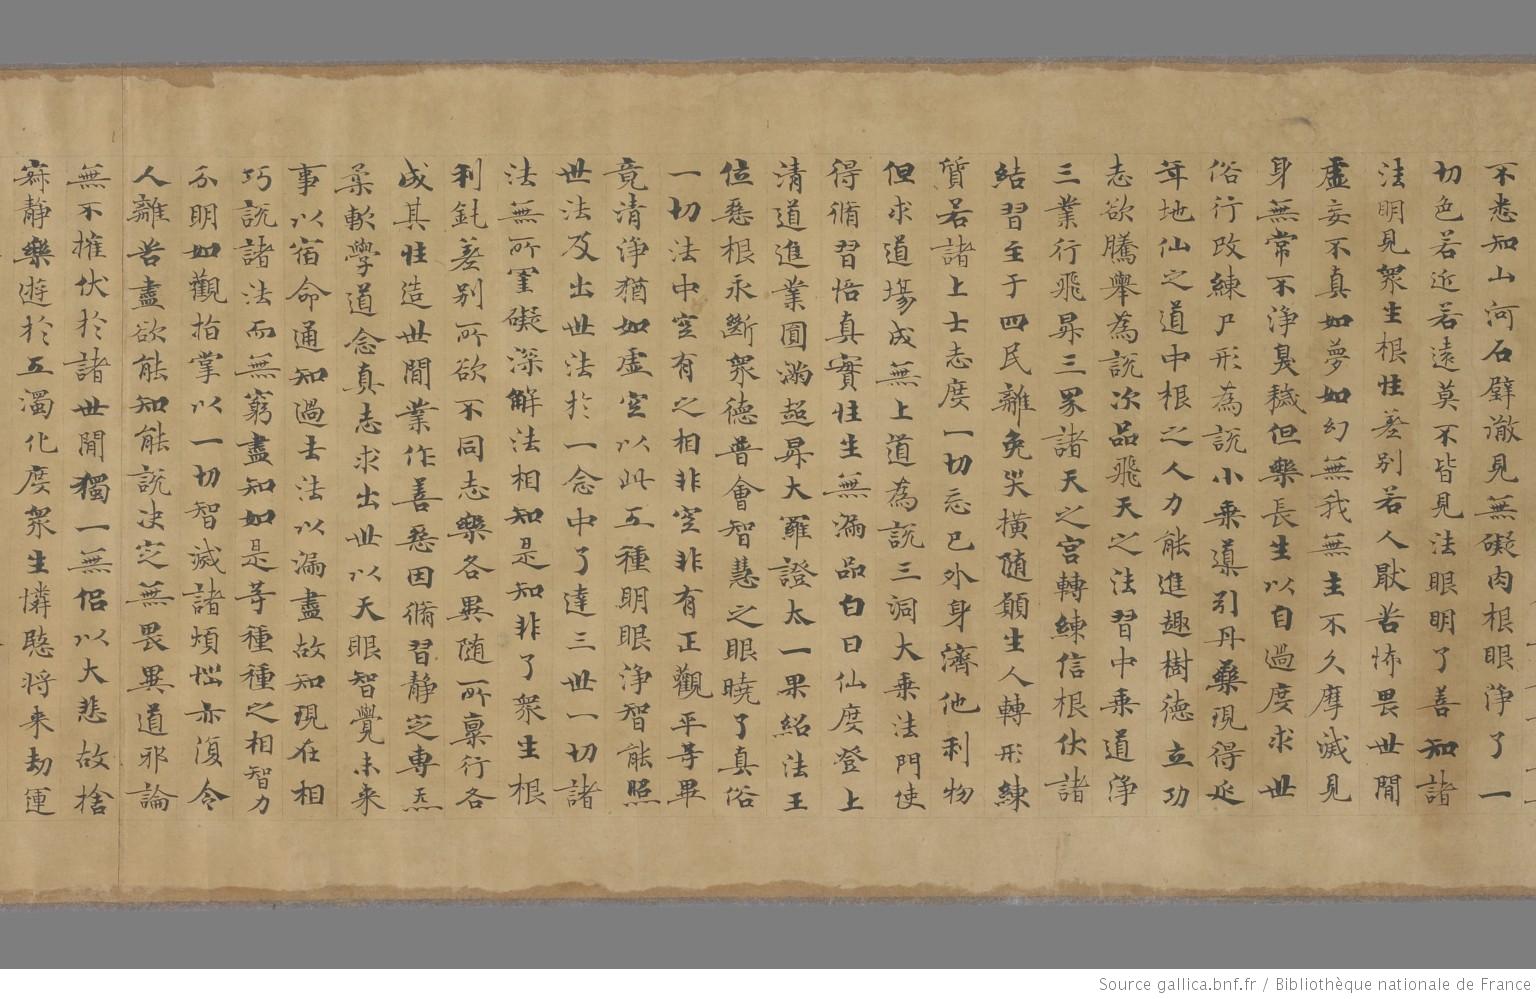 不悉知山河石壁澈見無礙肉根眼淨了一
切色若近若遠莫不皆見法眼明了善知諸
法明見衆生根性差別若人猒苦怖畏世閒
虛妄不真如夢如幻無我無主不久摩滅見
身無常不淨臭穢但樂長生以自過度求世
俗行改練尸形為説小乗導引丹藥現得延
年地仙之道中根之人力能進趣樹德立功
志欲騰舉為説次品飛天之法習中乗道淨
三業行飛昇三界諸天之宮轉練信根伏諸
結習生于四民離免災橫随願生人轉形練
質若諸上士志度一切忘己外身濟他利物
但求道場成無上道為説三洞大乗法門使
得脩習悟真實性生無漏品白日仙度登上
清道進業圓滿超昇大羅證太一果紹法王
位惡根永斷衆德普會智慧之眼曉了真俗
一切法中空有之相非空非有正觀平等畢
竟清淨猶如虛空以此五種明眼淨智能照
世法及出世法於一念中了達三世一切諸
法無所罣礙深解法相知是知非了衆生根
利鈍差別所欲不同志樂各異随所稟行各
成其性造世閒業作善惡因脩習靜定專炁
柔軟學道念真志求出世以天眼智覺未來
事以宿命通知過去法以漏盡故知現在相
巧説諸法而無窮盡知如是等種種之相智力
分明如觀指掌以一切智滅諸煩惱亦復令
人離苦盡欲能知能説決定無畏異道邪論
無不摧伏於諸世閒獨一無侶以大悲故捨
寂靜樂遊於五濁化度衆生憐愍將來劫運